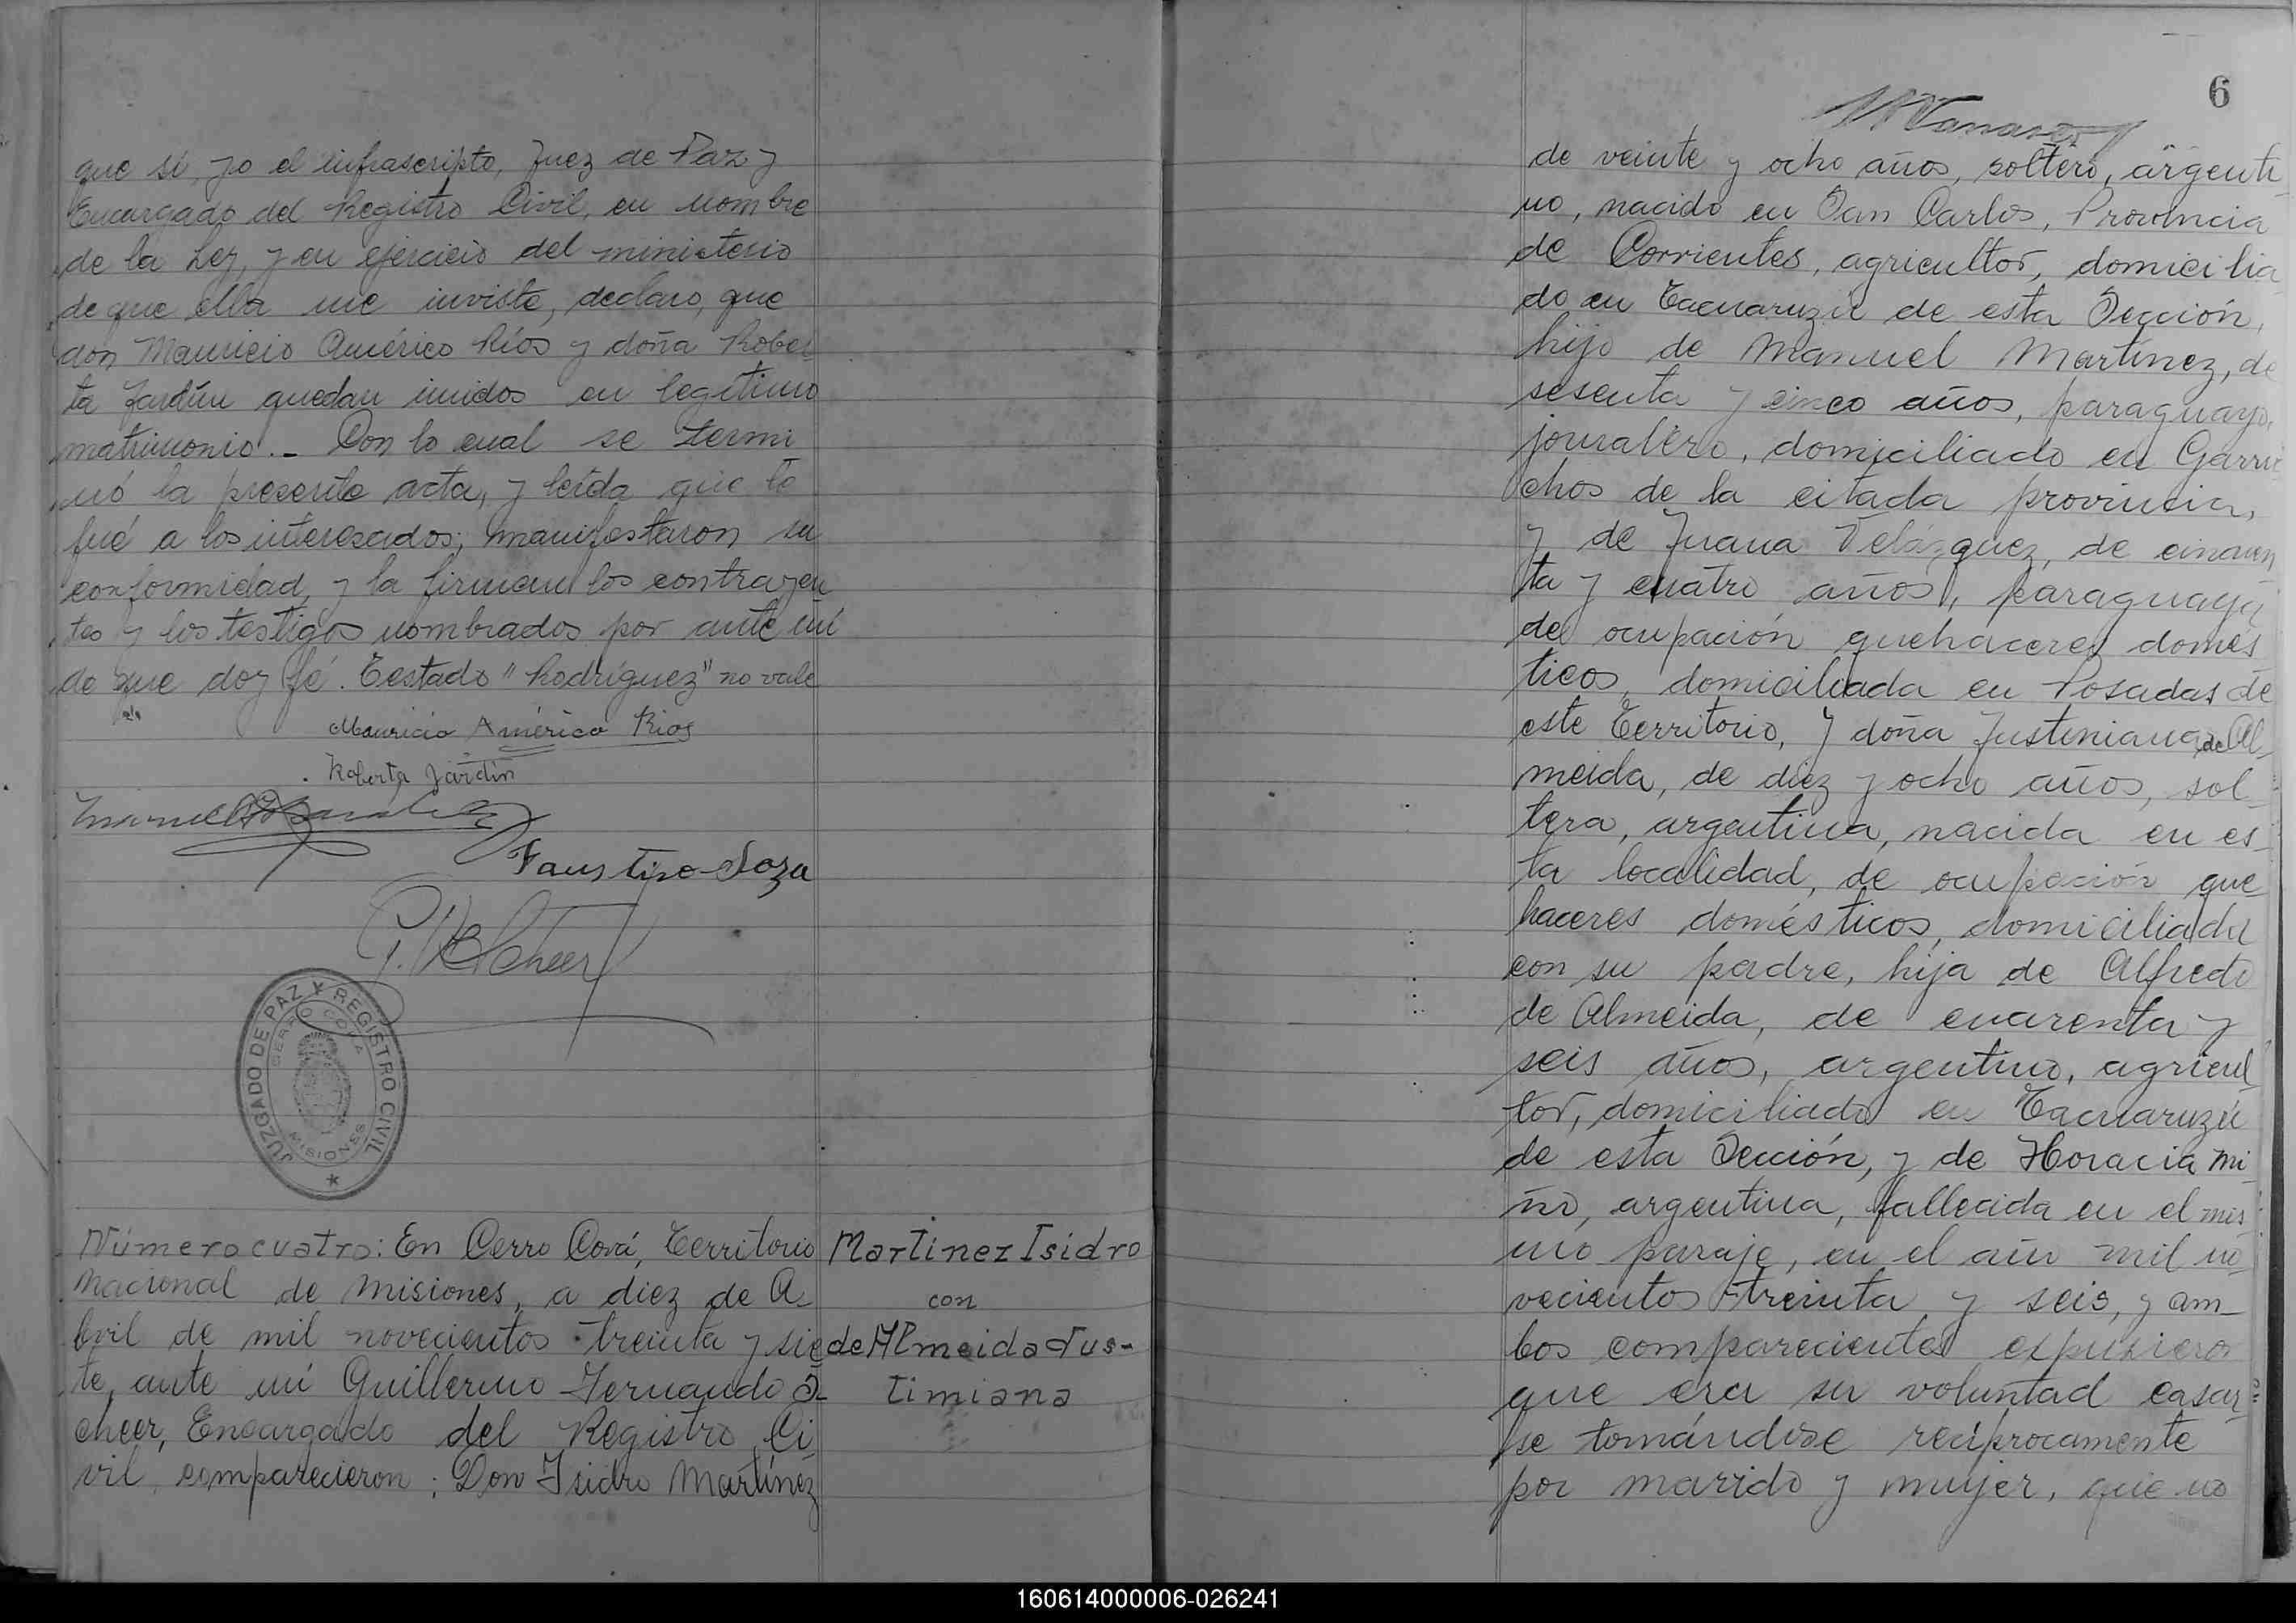 que si, yo el infrascripto, Juez de Paz y
Encargado del Registro Civil, en nombre
de la Ley, y en ejercicio del ministerio
de que ella me inviste, declaro, que
don Mauricio Américo Ríos y doña Rober
ta Jardín quedan unidos en legítimo
matrimonio._ Con lo cual se termi
nó la presente acta, y leída que le
fué a los interesados; manifestaron su
conformidad, y la firman los contrayen
tes y los testigos nombrados por ante mí
de que doy fé. Testado "Rodríguez" no vale
Mauricio Américo Rios
Roberta Jardín
Faustino Soza
G. F. Scheer
JUZGADO DE PAZ Y REGISTRO CIVIL
CERRO CORA
MISIONES
Número cuatro: En Cerro Corá, Territorio
Nacional de Misiones, a diez de A_
bril de mil novecientos treinta y sie
te, ante mí Guillermo Fernando S_
cheer, Encargado del Registro Ci
vil, comparecieron: Don Isidro Martínez
Martinez Isidro
con
de Almeida Jus-
timiana
6
de veinte y ocho años, soltero, argenti
no, nacido en San Carlos, Provincia
de Corrientes, agricultor, domicilia
do en Tacuaruzú de esta Sección,
hijo de Manuel Martínez, de
sesenta y cinco años, paraguayo,
jornalero, domiciliado en Garru
chos de la citada provincia,
y de Juana Velázquez, de cincuen
ta y cuatro años, paraguaya
de ocupación quehaceres domés
ticos, domiciliada en Posadas de
este Territorio, y doña Justiniana de Al_
meida, de diez y ocho años, sol_
tera, argentina, nacida en es_
ta localidad, de ocupación que
haceres domésticos, domiciliada
con su padre, hija de Alfredo
de Almeida, de cuarenta y
seis años, argentino, agricul_
tor, domiciliado en Tacuaruzú
de esta Sección, y de Horacia Mi
ño, argentina, fallecida en el mis
mo paraje, en el año mil no_
vecientos treinta y seis, y am_
bos comparecientes expusieron
que era su voluntad casar
se tomándose recíprocamente
por marido y mujer, que no
160614000006-026241